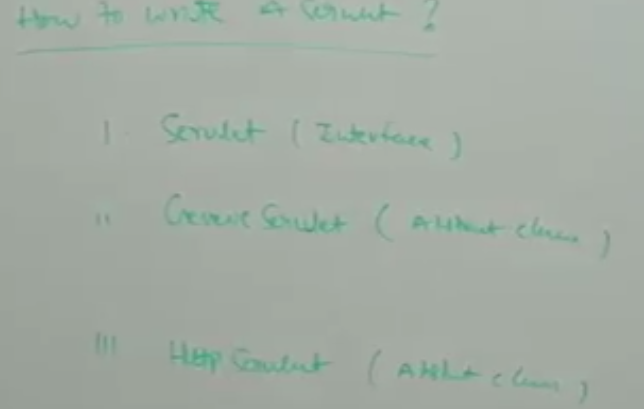 How to write A Servlet ?
I. Servlet ( Interface )
II Generic Servlet ( Abstract class )
III Http Servlet ( Abstract class )